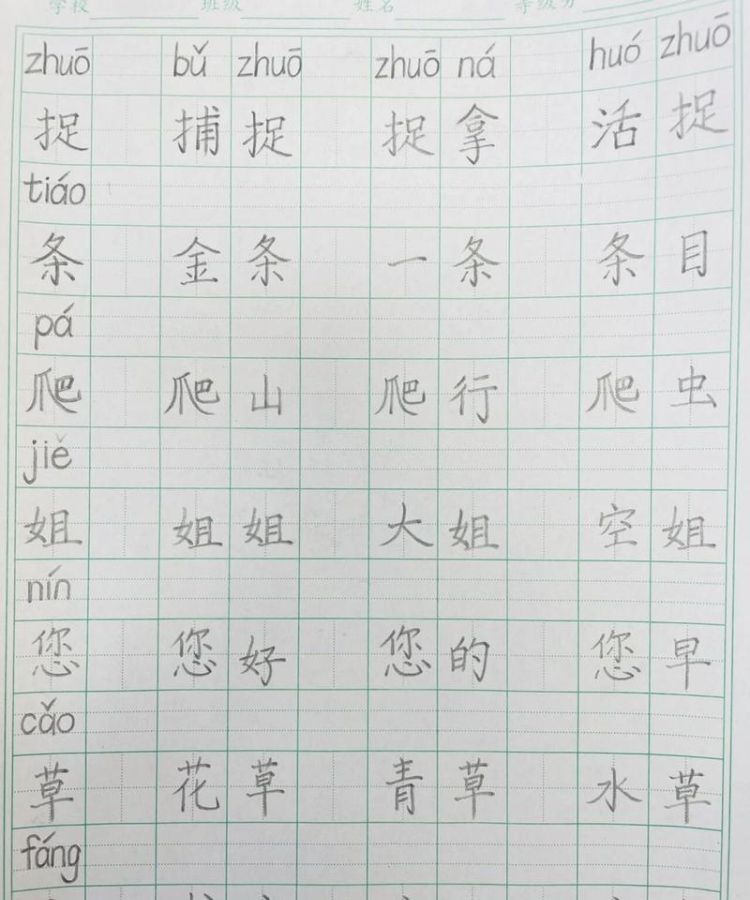 学校 班级 姓名 等级分
zhuō bǔ zhuō zhuō ná huó zhuō
捉 捕捉 捉拿 活捉
tiáo
条 金条 一条 条目
pá
爬 爬山 爬行 爬虫
jiě
姐 姐姐 大姐 空姐
nín
您 您好 您的 您早
cǎo
草 花草 青草 水草
fáng